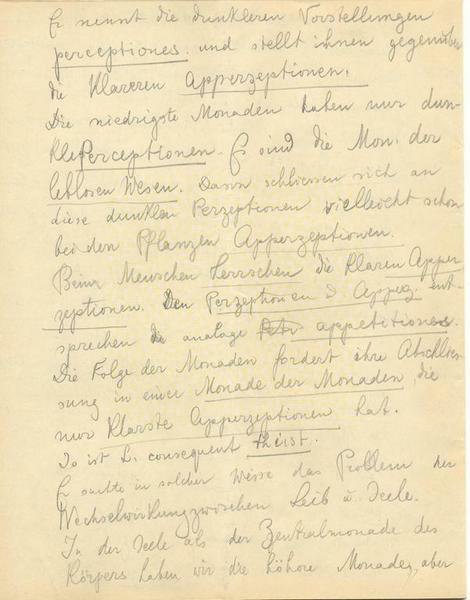 Er nennt die dunkleren Vorstellungen
perceptiones. und stellt ihnen gegenüber
die klareren Apperzeptionen.
Die niedrigste Monaden haben nur dun-
kle Perceptionen. Es sind die Mon. der
leblosen Wesen. Dann schliessen sich an
diese dunklen Perzeptionen vielleicht schon
bei den Pflanzen Apperzeptionen.
Beim Menschen herrschen die klaren Apper
zeptionen. Den Perzeptionen & Apperz. ent-
sprechen die analoge appetitiones.
Die Folge der Monaden fordert ihre Abschlies-
sung in einer Monade der Monaden, die
nur klarste Apperzeptionen hat.
So ist L. consequent theist.
Er suchte in solcher Weise das Problem der
Wechselwirkung zwischen Leib u. Seele.
In der Seele als der Zentralmonade des
Körpers haben wir die höhere Monade, aber